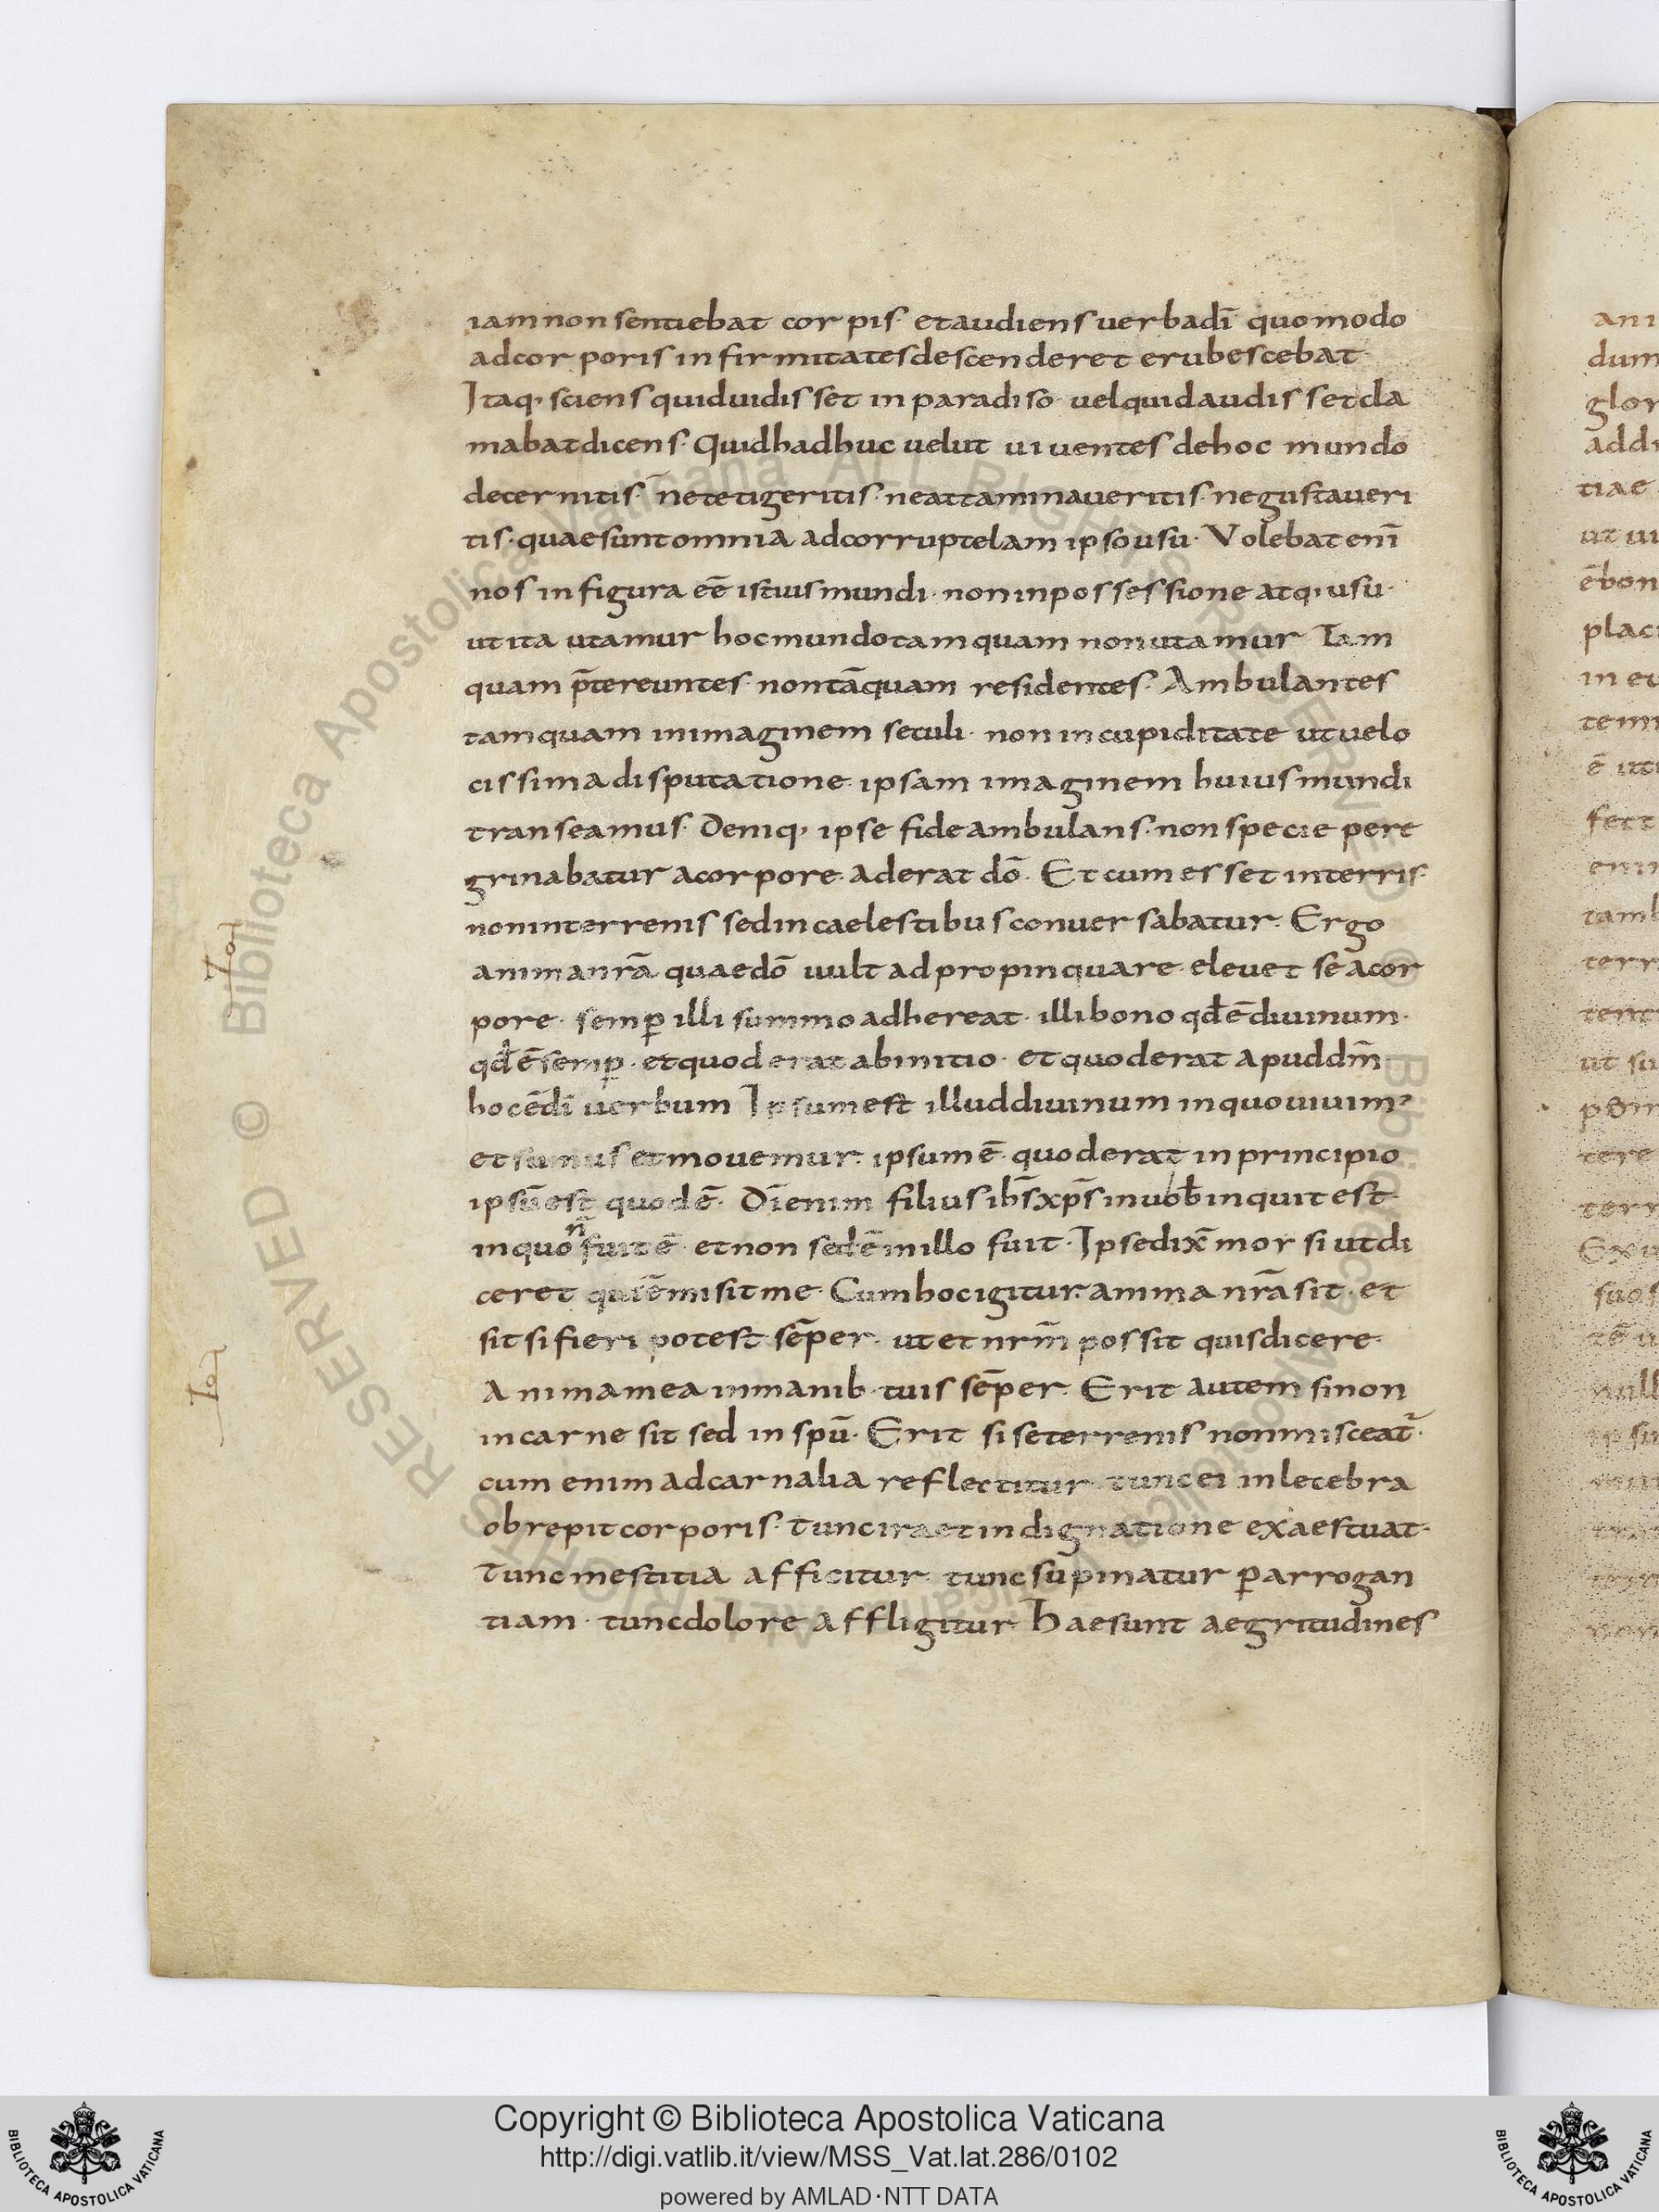 iam non sentiebat corpis· et audiens verba dī quomodo
ad corporis infirmitates descenderet erubescebat·
Itaq; sciens quid vidisset in paradiso· vel quid audisset cla
mabat dicens· Quid hadhuc velut viventes de hoc mundo
decernitis· ne tetigeritis· ne attaminaveritis· ne gustaveri
tis· quae sunt omnia ad corruptelam ipso usu· Volebat enī
nos in figura eē istius mundi· non in possessione atq; usu·
ut ita utamur hoc mundo tamquam non utamur Tam
quam p̄tereuntes· non tāquam residentes· Ambulantes
tamquam in imaginem seculi· non in cupiditate ut velo
cissima disputatione· ipsam imaginem huius mundi
transeamus· Deniq; ipse fide ambulans· non specie pere
grinabatur a corpore· aderat dō· Et cum esset in terris·
non in terrenis sed in caelestibus conversabatur· Ergo
anima nr̄a quae dō vult adpropinquare· elevet se a cor
pore· semꝑ illi summo adhereat· illi bono qđ ē divinum·
qđ ē semꝑ· et quod erat ab initio· et quod erat apud dm̄·
hoc ē dī verbum Ipsum est illud divinum in quo vivim᾽
et sumus et movemur· ipsum ē· quod erat in principio
ipsū est quod ē· Dī enim filius ih̄s xp̄s in vob̄ inquit est·
in quo n̄ fuit ē· et non sed ē in illo fuit· Ipse dix̄ mor si ut di
ceret qui ē misit me· Cum hoc igitur· anima nr̄a sit· et
sit si fieri potest sēper· ut et nr̄m possit quis dicere·
Anima mea in manib· tuis sēper· Erit autem si non
in carne sit sed in spū· Erit si se terrenis non misceat᷑·
cum enim ad carnalia reflectitur· tunc ei inlecebra
obrepit corporis· tunc ira et indignatione exaestuat·
Tunc mestitia afficitur· tunc supinatur ꝑ arrogan
tiam· tunc dolore affligitur· Hae sunt aegritudines
Copyright © Biblioteca Apostolica Vaticana
http://digi.vatlib.it/view/MSS_Vat.lat.286/0102
powered by AMLAD·NTT DATA